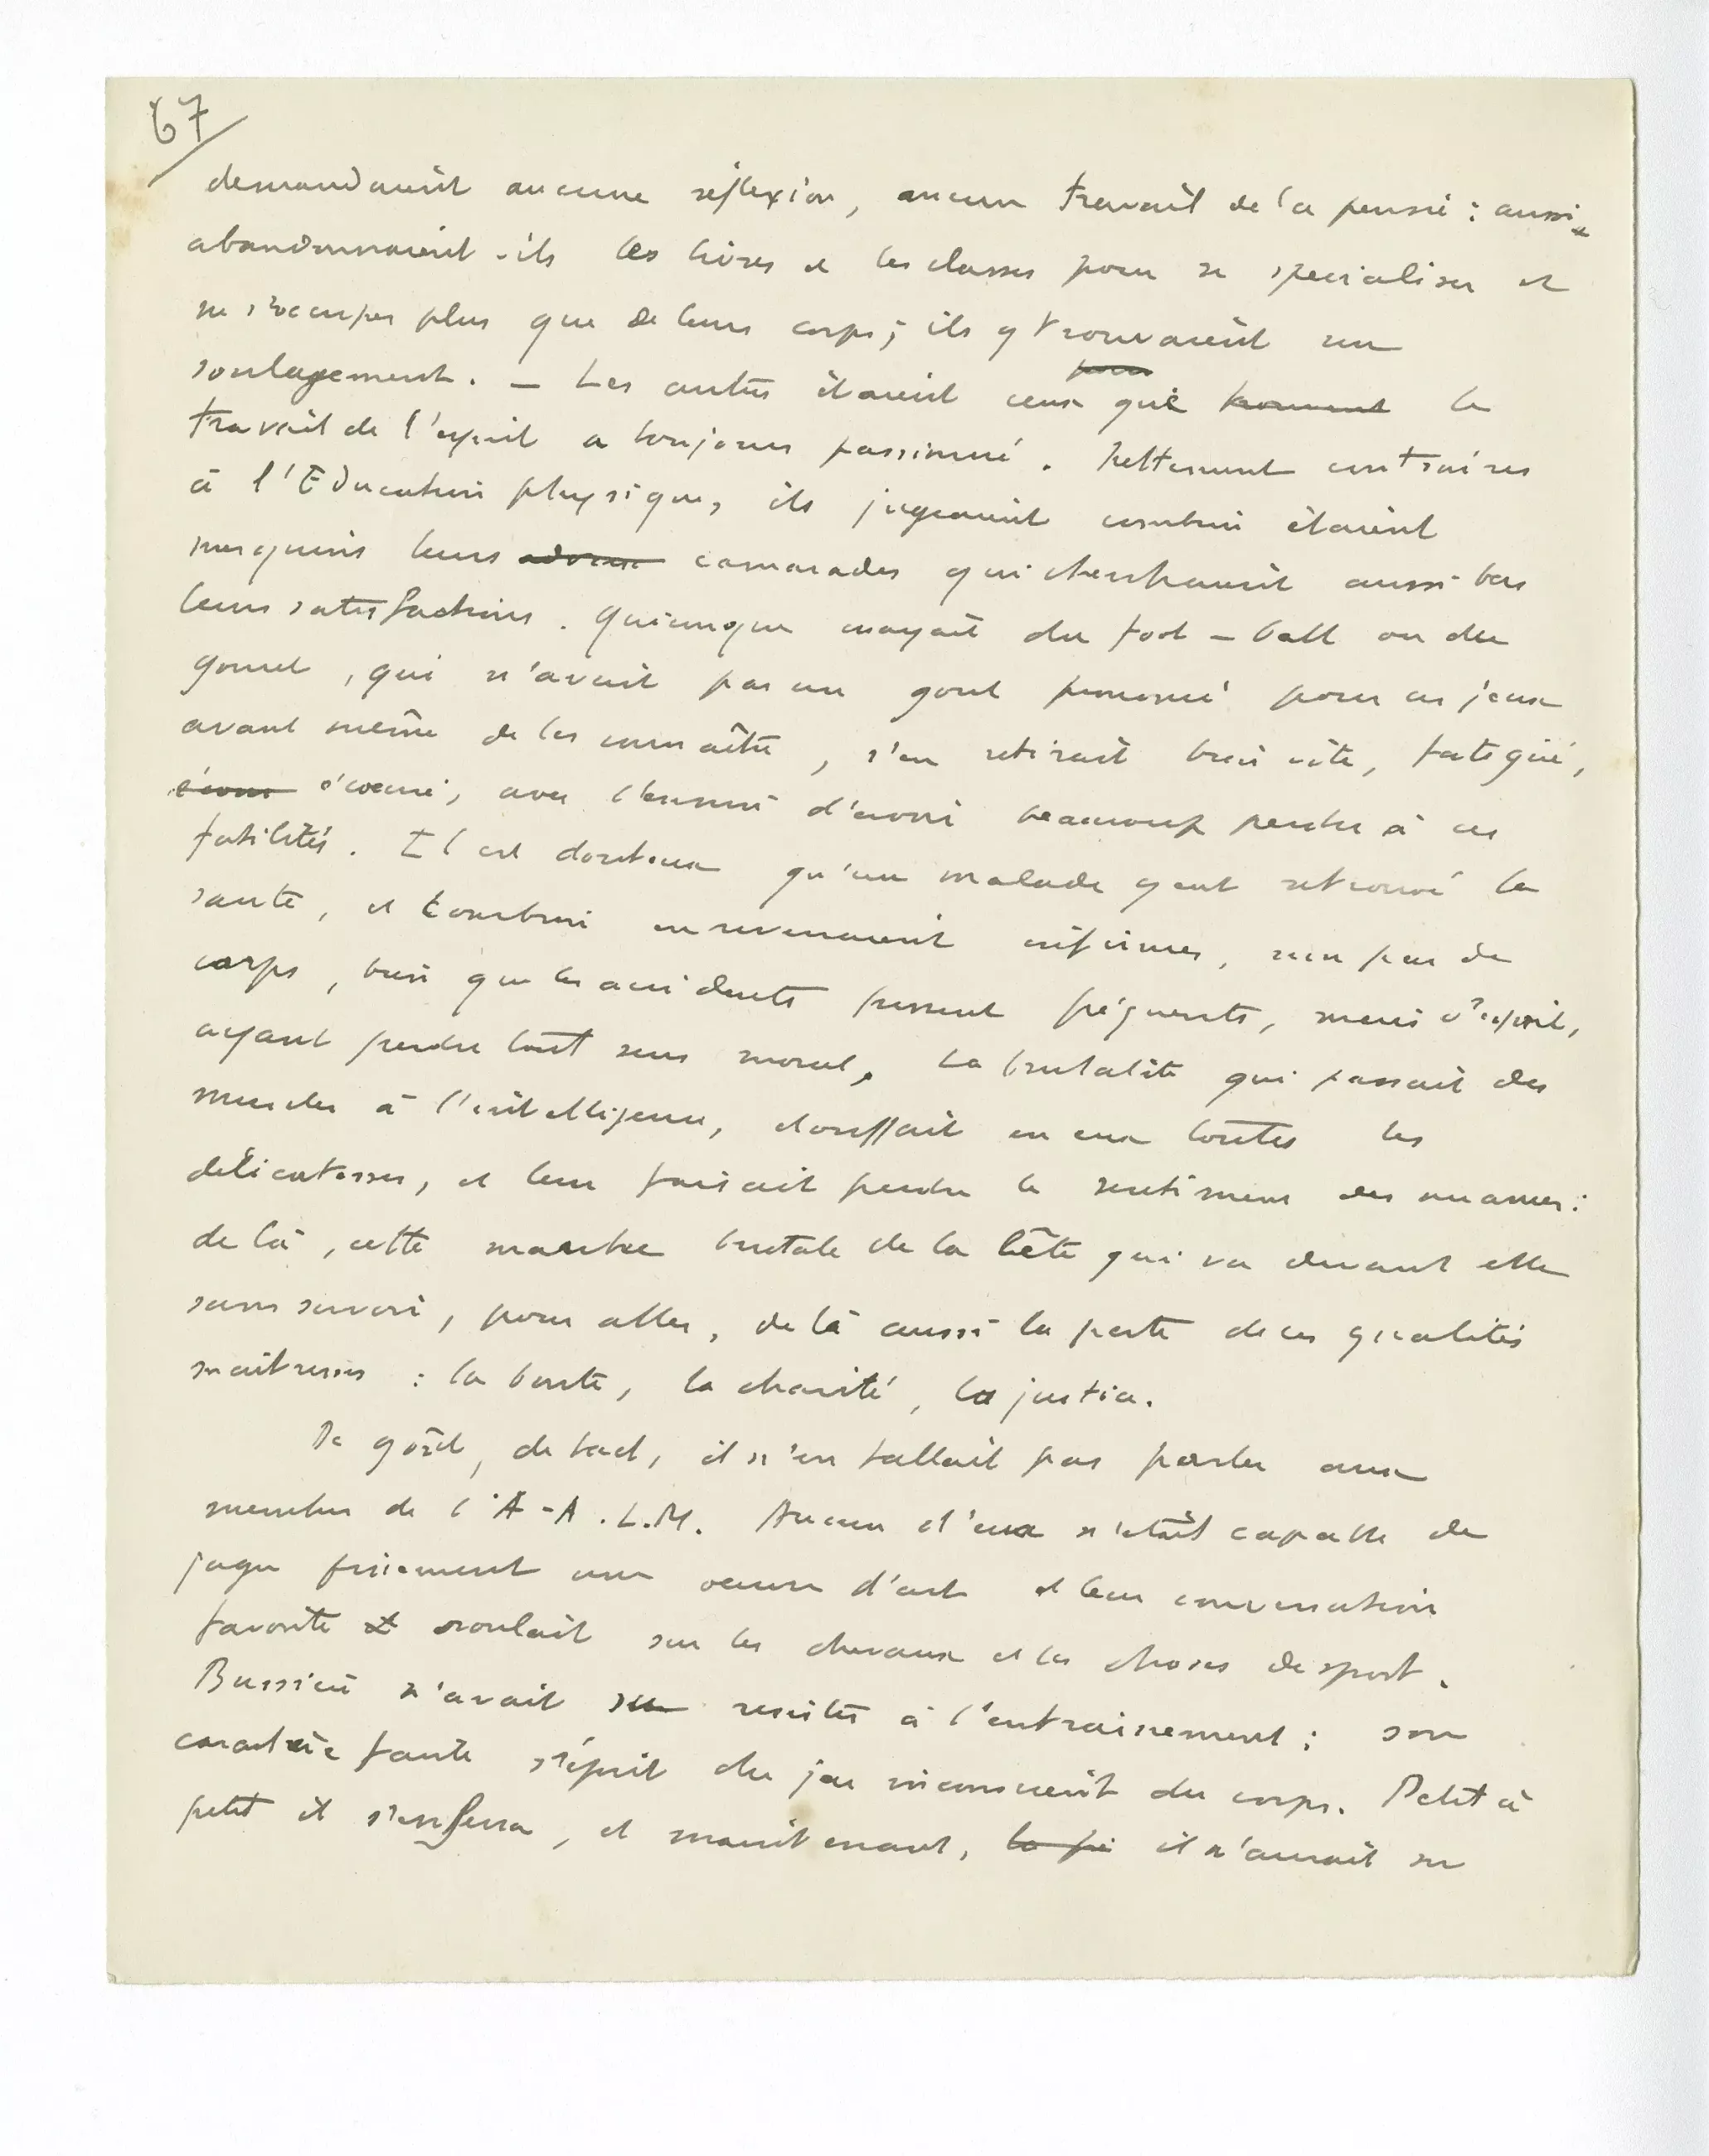 67
demandaient aucune réflexion, aucun travail de la pensée : aussi
abandonnaient-ils les livres et les classes pour se specialiser et
ne s'occuper plus que de leurs corps ; ils y trouvaient un
soulagement. — Les autres étaient ceux que le
travail de l'esprit a toujours passionné. Nettement contraires
à l'Education physique, ils jugeaient combien étaient
mesquins leurs camarades qui cherchaient aussi bas
leurs satisfactions. Quiconque essayait du foot-ball ou du
gouret, qui n'avait pas un gout prononcé pour ces jeux
avant même de les connaître, s'en retirait bien vite, fatigué,
écœuré, avec l'ennui d'avoir beaucoup perdu à ces
futilités. Il est douteux qu'un malade y eut retrouvé la
santé, et combien en revenaient infirmes, non pas de
corps, bien que les accidents fussent fréquents, mais d'esprit,
ayant perdu tout sens moral. La brutalité qui passait des
muscles à l'intelligence, étouffait en eux toutes les
délicatesses, et leur faisait perdre le sentiment des nuances :
de là, cette marche brutale de la bête qui va devant elle
sans savoir, pour aller, de là aussi la perte de ces qualités
maitresses : la bonté, la charité, la justice.
De goût, de tact, il n'en fallait pas parler aux
membres de l'A-A.L.M. Aucun d'eux n'était capable de
juger finement une oeuvre d'art et leur conversation
favorite roulait sur les chevaux et les choses de sport.
Bussière n'avait su resister à l'entrainement : son
caractère s'éprit du jeu inconscient du corps. Petit à
petit il s'enferra, et maintenant, il n'aurait su